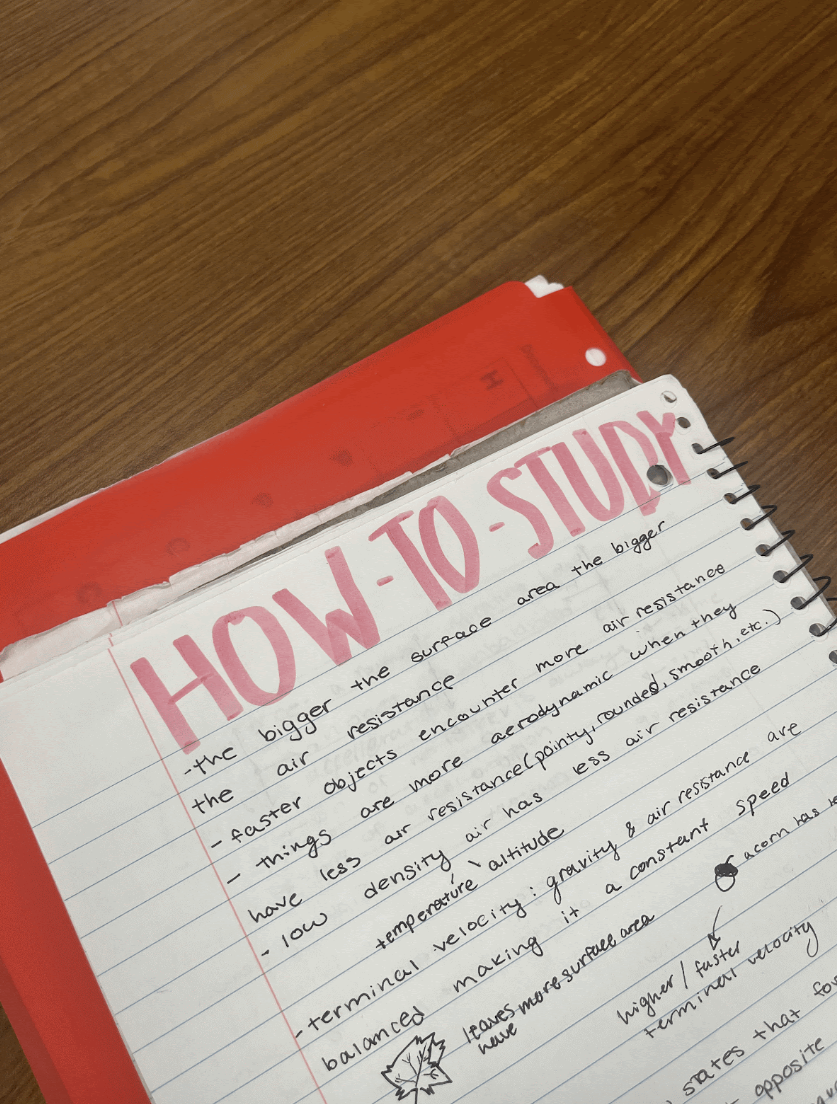 HOW-TO-STUDY
-the bigger the surface area the bigger
the air resistance
- faster objects encounter more air resistance
- things are more aerodynamic when they
have less air resistance (pointy, rounded, smooth, etc.)
- low density air has less air resistance
temperature \ altitude
- terminal velocity: gravity & air resistance are
balanced making it a constant speed
acorn has
leaves more surface area
have
higher/faster
terminal velocity
states that
opposite